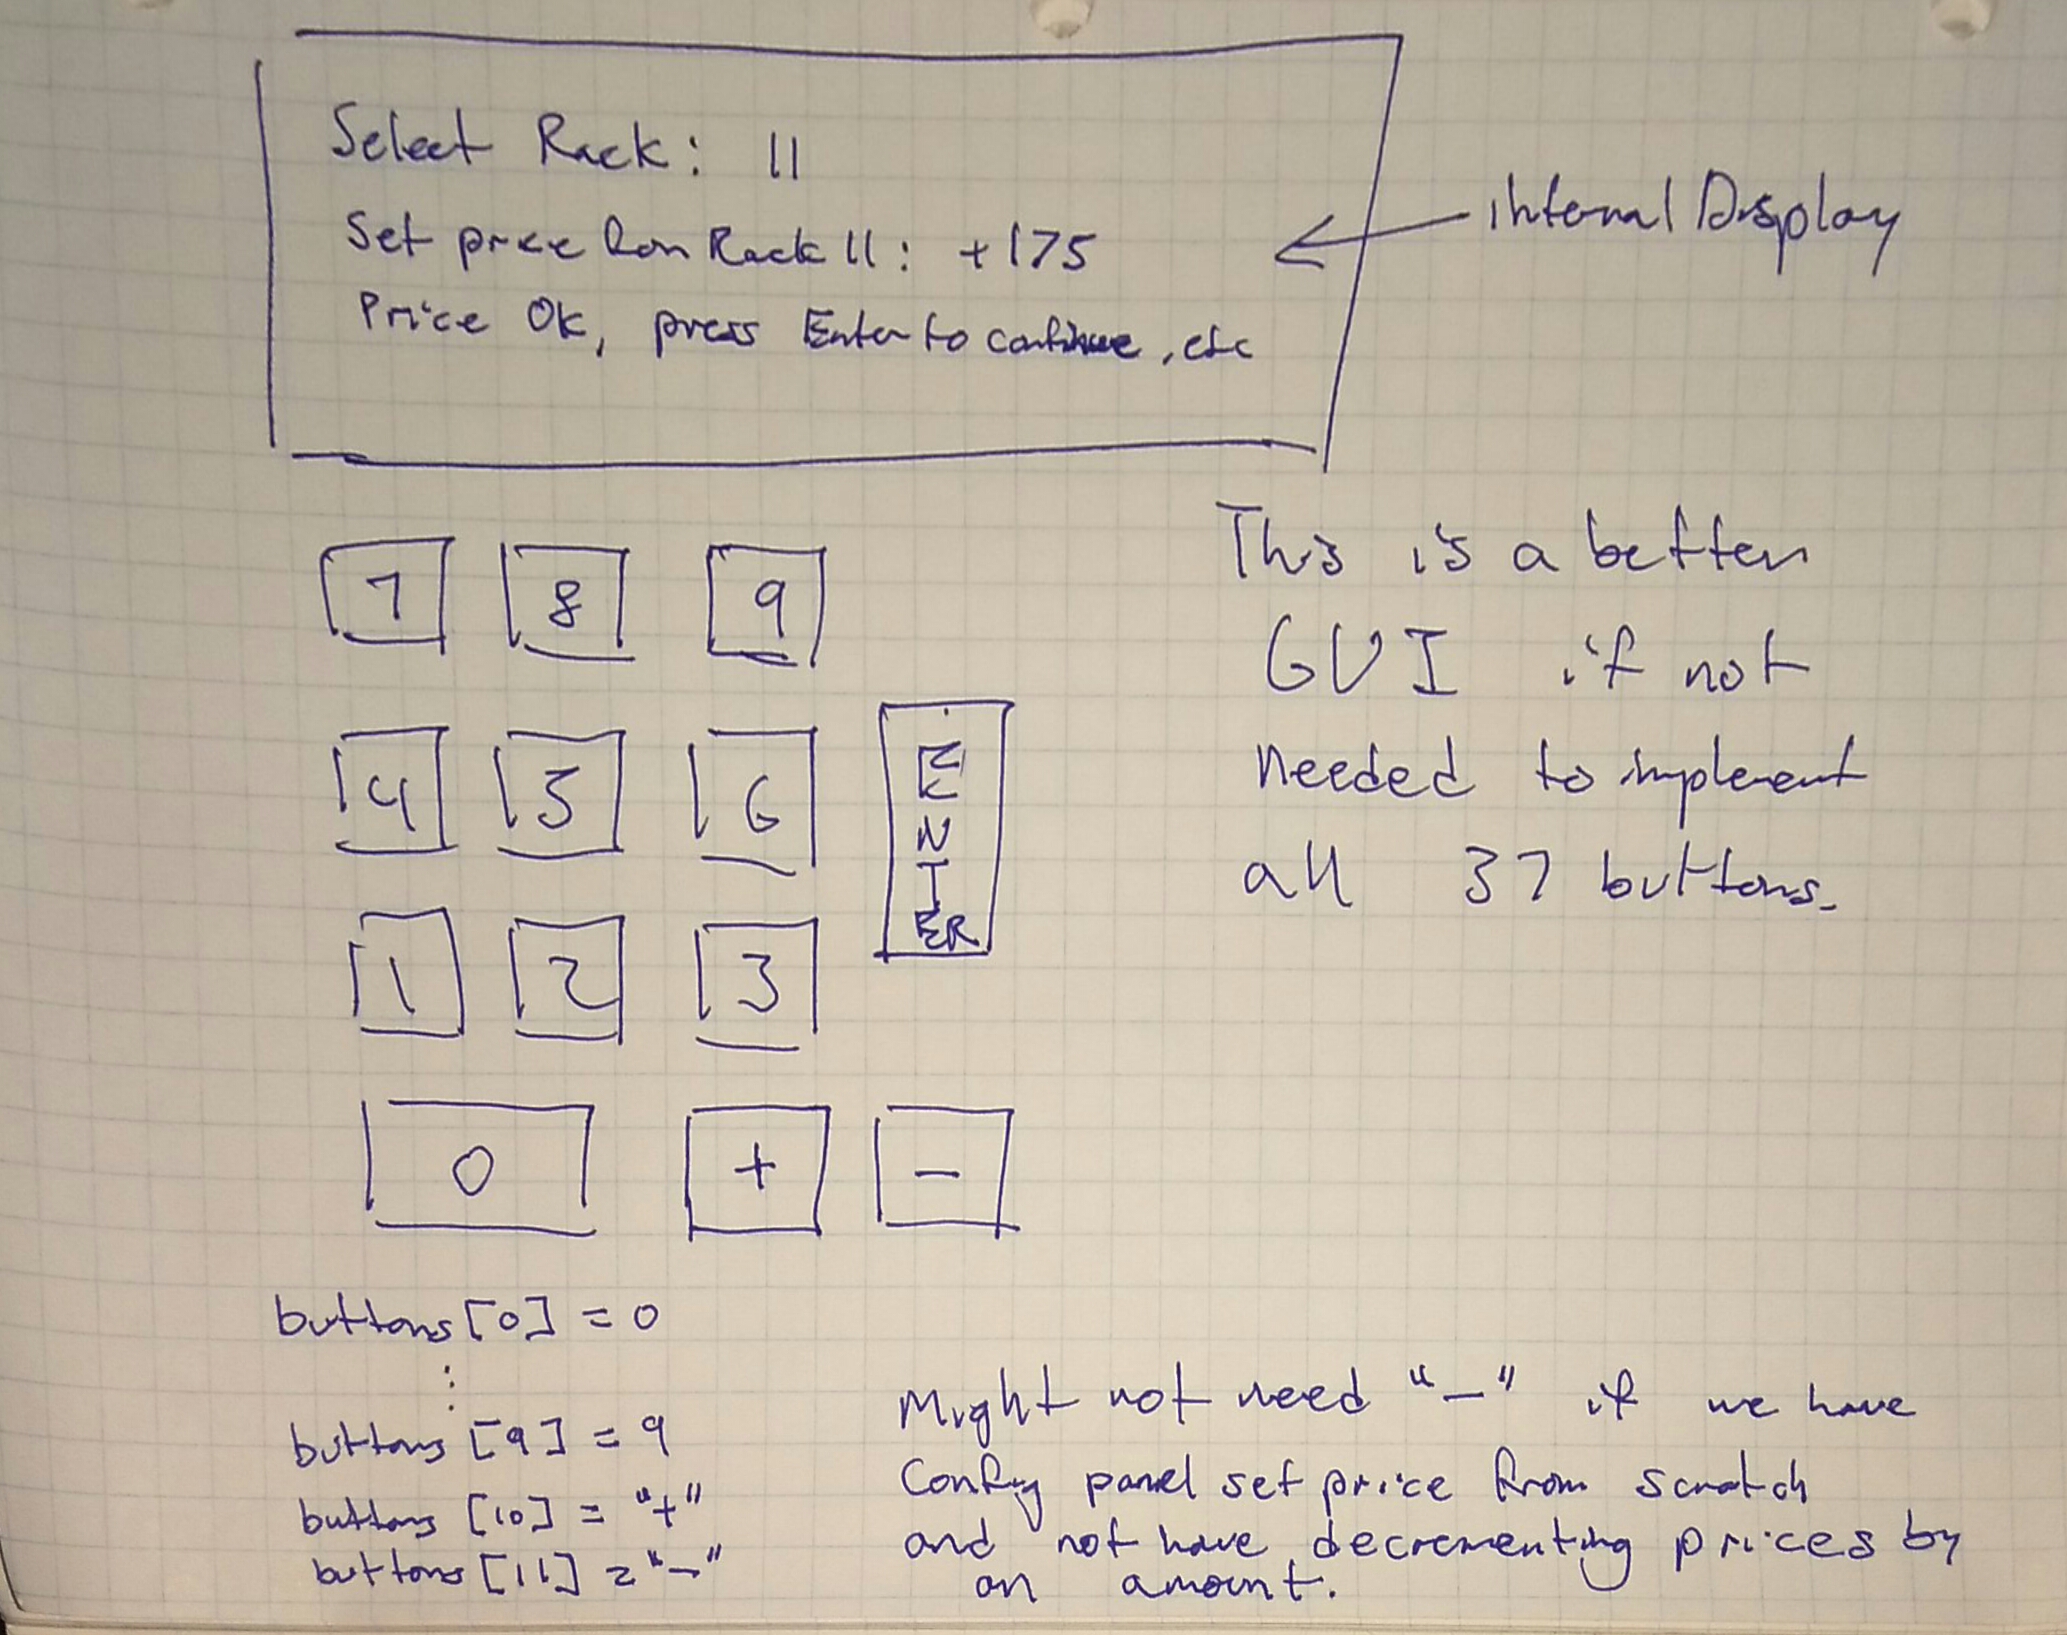 Select Rack: 11
Set price for Rack 11: +175
Price Ok, press Enter to continue, etc
internal Display
7 8 9
4 5 6
1 2 3
ENTER
0 + -
This is a better
GUI if not
needed to implement
all 37 buttons.
buttons [0] = 0
⋮
buttons [9] = 9
buttons [10] = "+"
buttons [11] = "-"
Might not need "-" if we have
Config panel set price from scratch
and not have decrementing prices by
an amount.